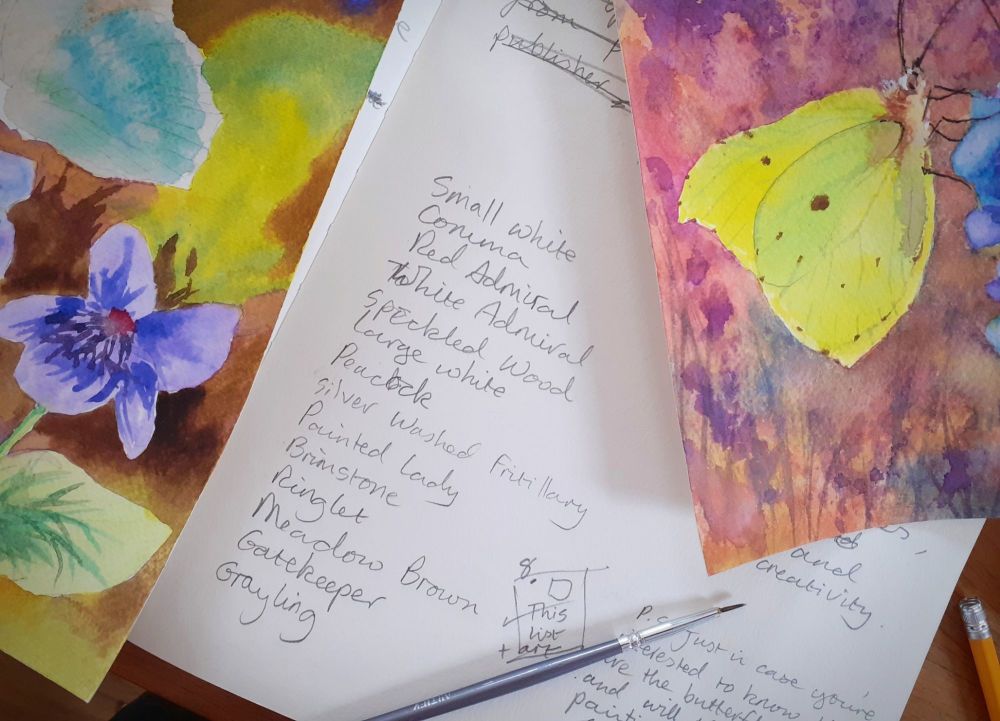 from
publisher
Small white
Comma
Red Admiral
White Admiral
Speckled Wood
Large white
Peacock
Silver Washed Fritillary
Painted Lady
Brimstone
Ringlet
Meadow Brown
Gatekeeper
Grayling
8.
This
list
+ art
and
creativity.
P.S. Just in case you're
interested to know
are the butterf
and will
painti